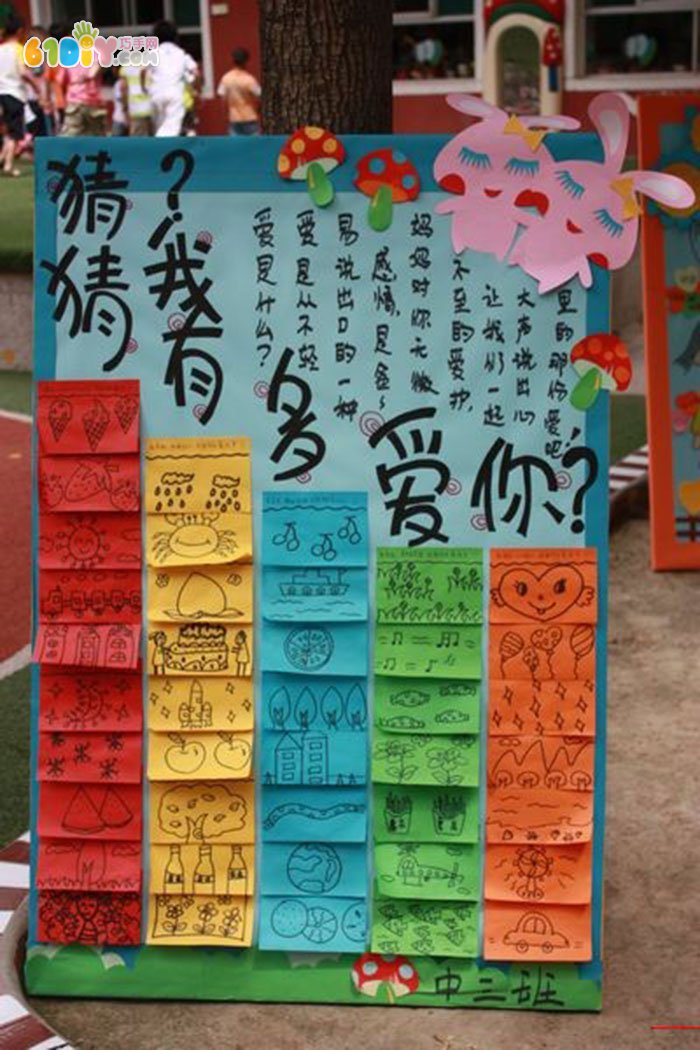 61DIY巧手网
.com
猜猜
？我有多爱你？
爱是什么？
爱是从不轻
易说出口的一种
感情，是爸~
妈妈对你无微
不至的爱护，
让我们一起
大声说出心
里的那份爱吧！
中三班